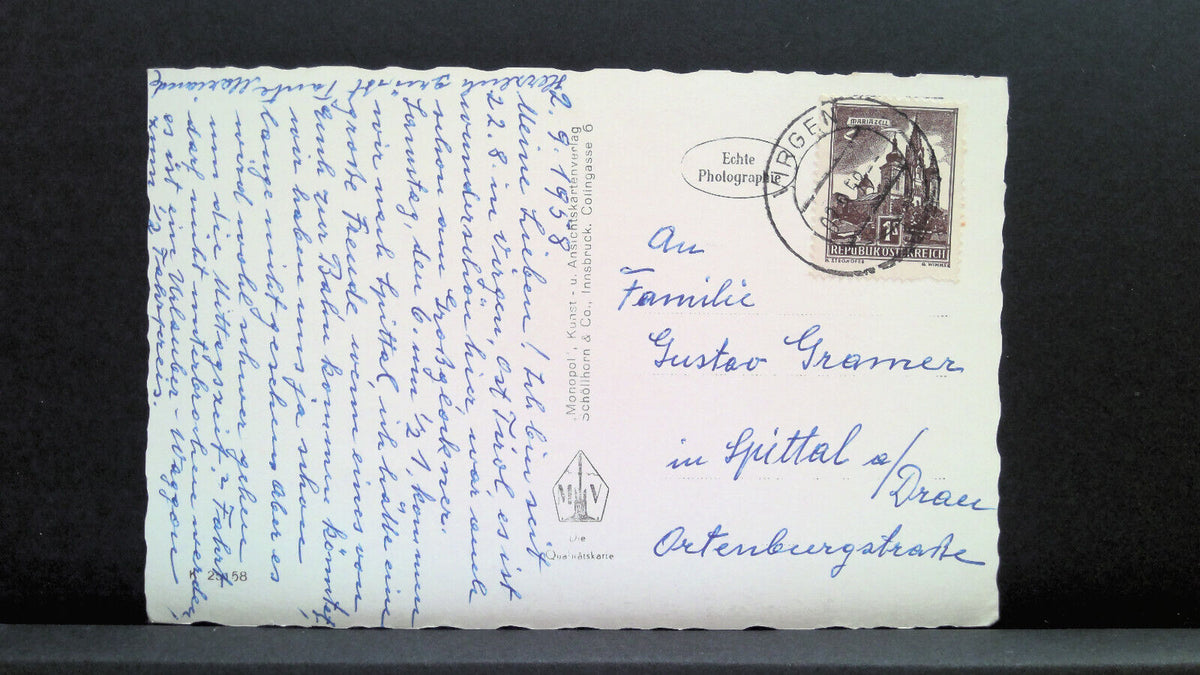 2. 9. 1958.
Meine Lieben! Ich bin seit
22. 8. in Virgen, Ost Tirol, es ist
wunderschön hier, war auch
schon am Großglockner.
Samstag, den 6. um ½ 1. kommen
wir nach Spittal, ich hätte eine
große Freude wenn eines von
Euch zur Bahn kommen könntet,
wir haben uns ja schon
lange nicht gesehen. Aber es
wird wohl schwer gehen
um die Mittagszeit. Fahrt
darf nicht unterbrochen werden,
es ist ein Urlauber-Waggon
zum ½ Fahrpreis.
Herzlich grüßt Tante
"Monopol", Kunst- u. Ansichtskartenverlag
Schöllhorn & Co., Innsbruck, Colingasse 6
M V
Die
Qualitätskarte
K 25158
Echte
Photographie
VIRGEN
MARIAZELL
1 S
REPUBLIK ÖSTERREICH
An
Familie
Gustav Gramer
in Spittal a/
Drau
Ortenburgstraße